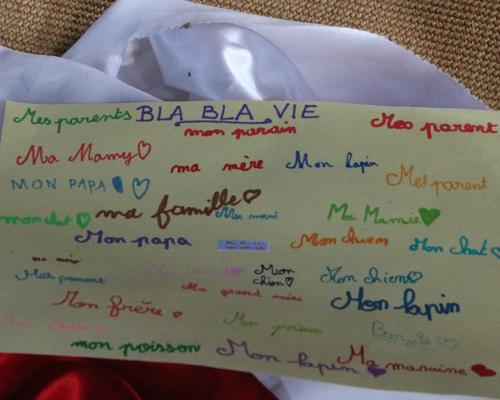 Mes parents BLA BLA VIE
mon parain Mes parent
Ma Mamy ma mère Mon lapin
MON PAPA Mes parent
mon chat ma famille Ma Mamie
Mon papa Mon chien Mon chat
Mes parent Mon chien Mon chien
Ma grand mère
Mon frère Mon lapin
Mon poisson
mon poisson Mon lapin Ma maraine